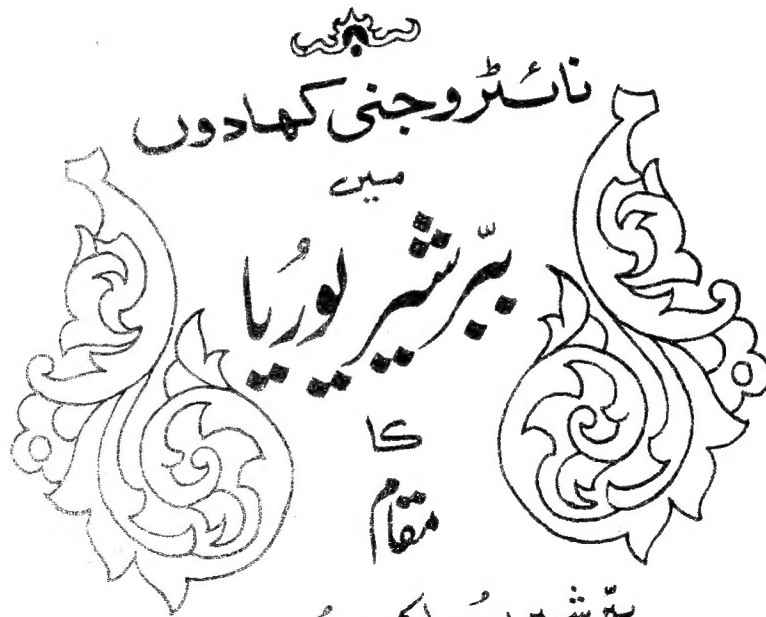 نائٹروجنی کھادوں
میں
ببّر شیر یُوریا
کا
مقام
ببّر شیر